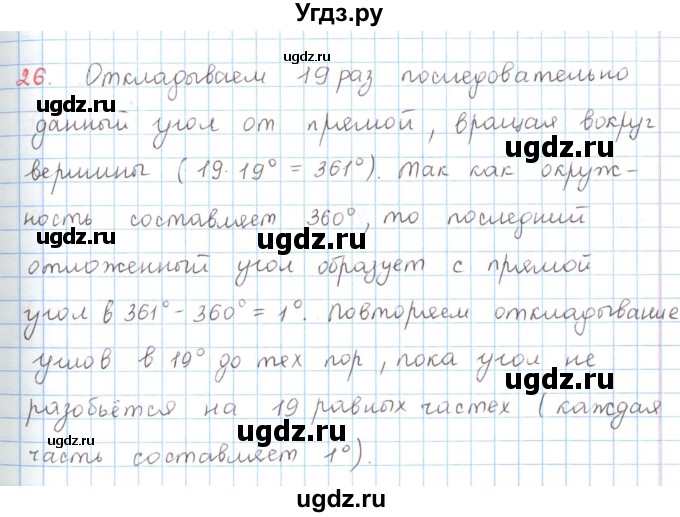 Угдз.ру
26. Откладываем 19 раз последовательно
данный угол от прямой, вращая вокруг
вершины (19·19° = 361°). Так как окруж-
ность составляет 360°, то последний
отложенный угол образует с прямой
угол в 361° - 360° = 1°. Повторяем откладывание
углов в 19° до тех пор, пока угол не
разобьётся на 19 равных частех (каждая
часть составляет 1°).
ugdz.ru
ugdz.ru
ugdz.ru
ugdz.ru
ugdz.ru
ugdz.ru
ugdz.ru
ugdz.ru
ugdz.ru
ugdz.ru
ugdz.ru
ugdz.ru
ugdz.ru